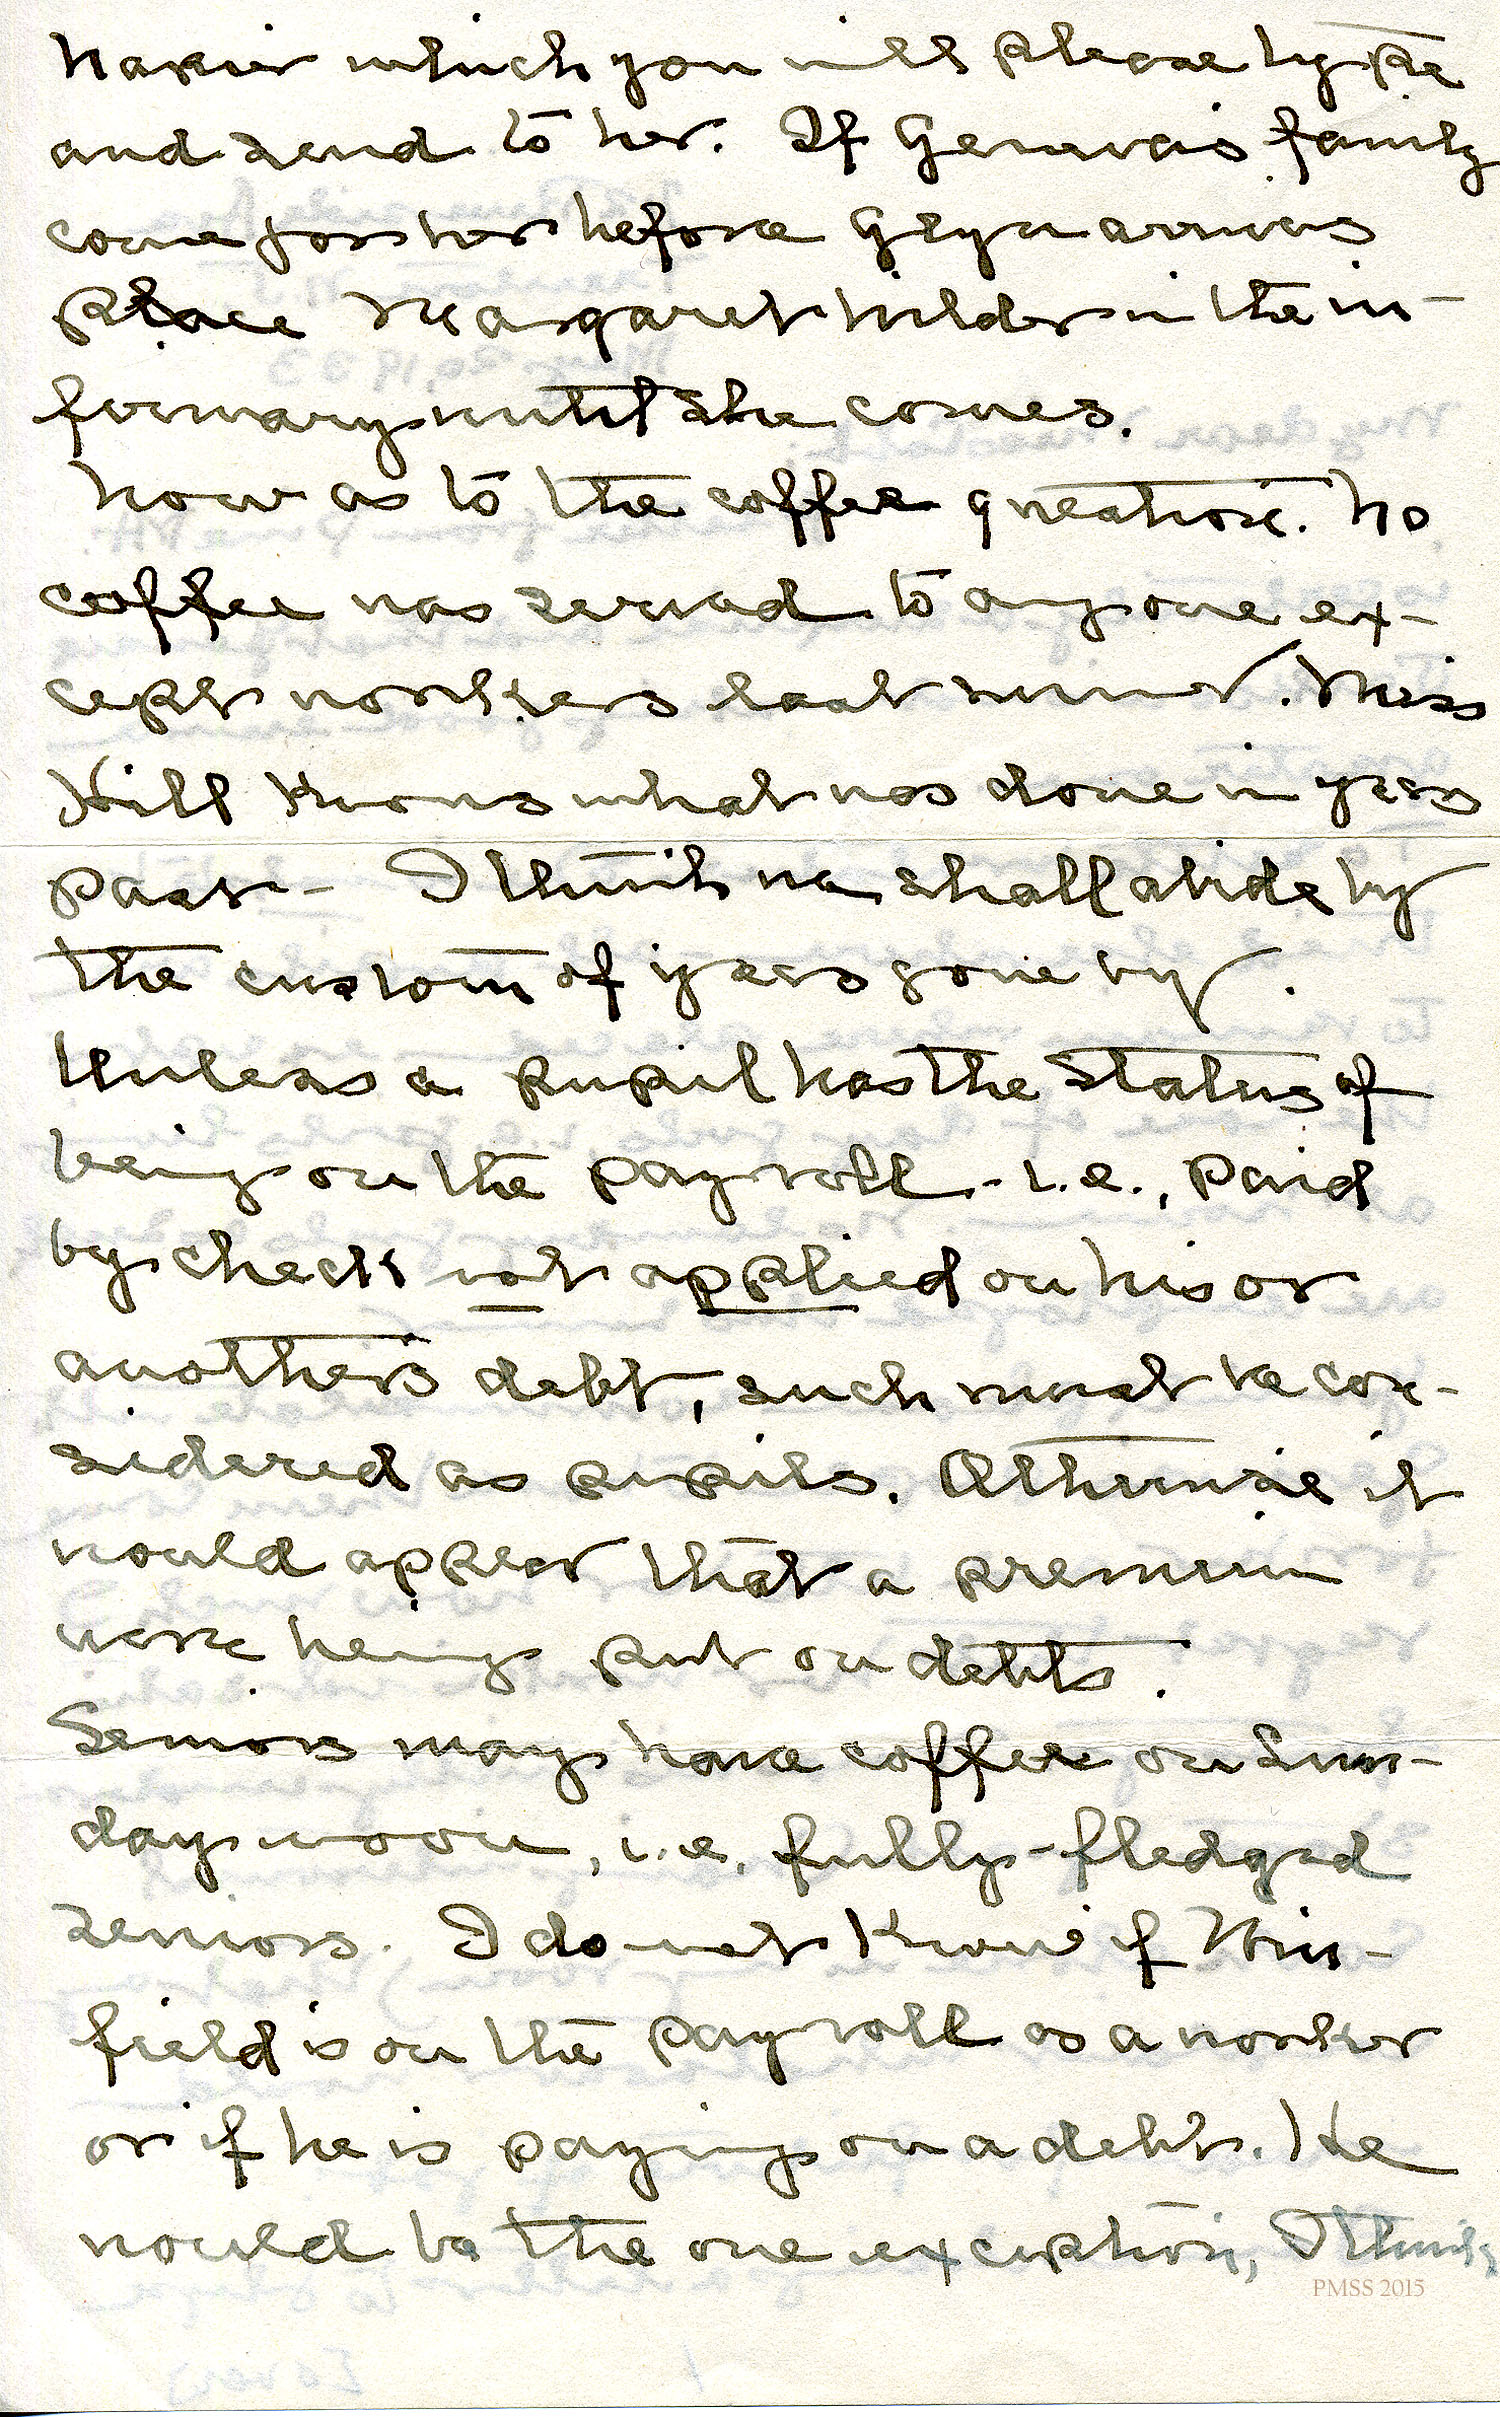 Napier which you will please type
and send to her. If Geneva's family
come for her before Glyn arrives
place Margaret Wilder in the in-
firmary until she comes.
Now as to the coffee question. No
coffee was served to anyone ex-
cept workers last winter. Miss
Hill knows what was done in years
past - I think we shall abide by
the custom of years gone by.
Unless a pupil has the status of
being on the payroll - i.e., paid
by check not applied on his or
another's debt, such must be con-
sidered as pupils. Otherwise it
would appear that a premium
were being put on debts.
Seniors may have coffee on Sun-
day noon, i.e. fully-fledged
seniors. I do not know if Win-
field is on the payroll as a worker
or if he is paying on a debt. He
would be the one exception, I think
PMSS 2015